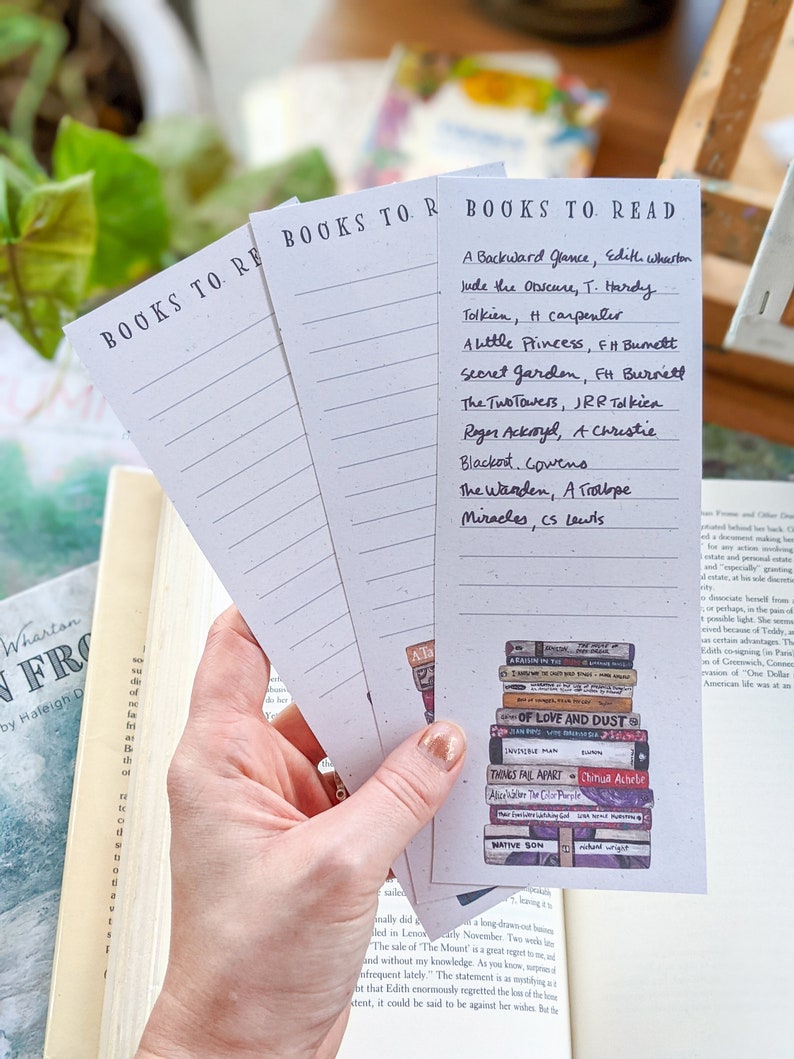 BOOKS TO RE
BOOKS TO R
BOOKS TO READ
A Backward Glance, Edith Wharton
Jude the Obscure, T. Hardy
Tolkien, H Carpenter
A Little Princess, FH Burnett
Secret Garden, FH Burnett
The Two Towers, JRR Tolkien
Roger Ackroyd, A Christie
Blackout. Cowens
The Warden, A Trollope
Miracles, CS Lewis
A RAISIN IN THE
I KNOW WHY THE CAGED BIRD SINGS MAYA ANGELOU
OF LOVE AND DUST
JEAN RHYS WIDE SARGASSO SEA
INVISIBLE MAN ELLISON
THINGS FALL APART Chinua Achebe
Alice Walker The Color Purple
Their Eyes Were Watching God ZORA NEALE HURSTON
NATIVE SON richard wright
A Ta
Wharton
N FRO
by Haleigh D
an Frome and Other
behind her back.
ed a document making her
for any action involving
estate and personal
and "especially" granting
l estate, at his sole discretio
o dissociate herself from
; or perhaps, in the pain of
possible light. She seems
eived because of Teddy, an
us certain advantages. The
Edith co-signing (in Paris)
of Greenwich, Connec
evasion of "One Dollar
American life was at an
sailed
unspeakably
7. leaving it to
nally did
n a long-drawn-out business
led in Lenox
early November. Two weeks later
"The sale of 'The Mount' is a great regret to me, and
and without my knowledge. As you know, surprises of
nfrequent lately." The statement is as mystifying as it
bt that Edith enormously regretted the loss of the home
xtent, it could be said to be against her wishes. But the